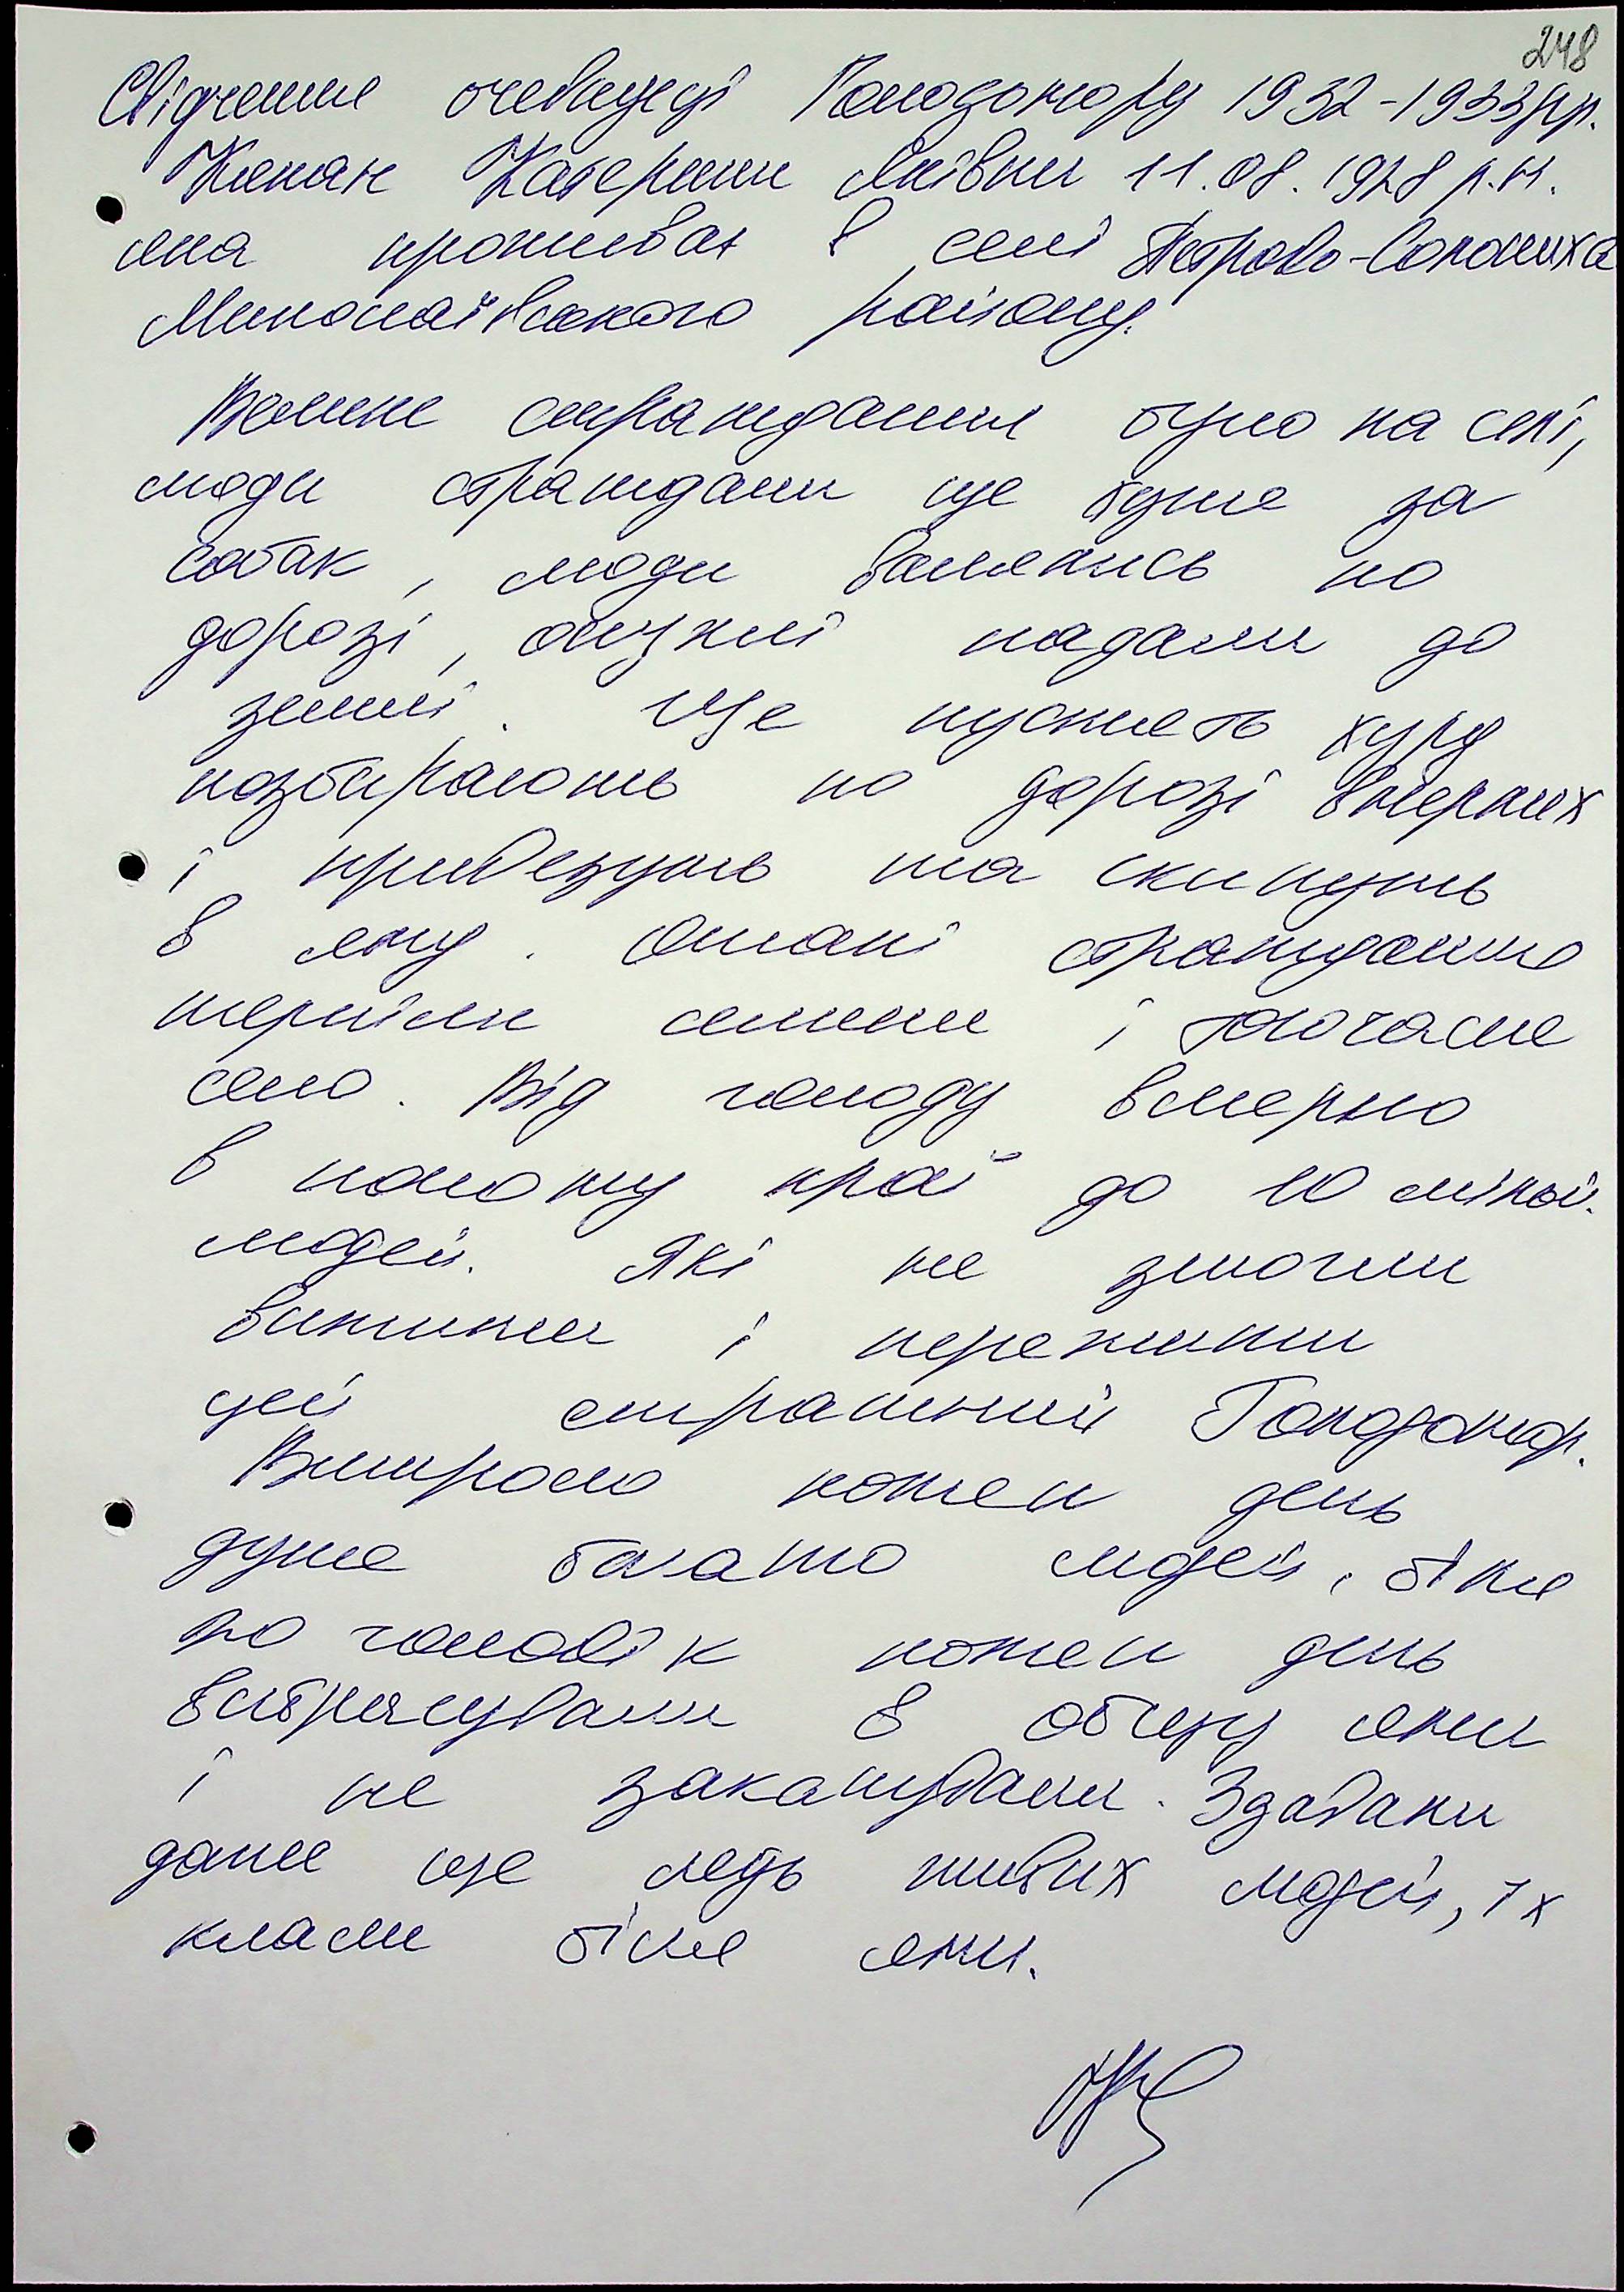 248
Свідчення очевидці Голодомору 1932-1933рр.
Катерини Яківни 11.08.1928 р.н.
яка проживає в селі Петрово-Солониха
Миколаївського району.
Велике страждання було на селі,
люди страждали ще хуже за
собак, люди валялись по
дорозі, опухлі падали до
землі. Ще пускають хуру
позбирають по дорозі вмерших
і привезуть та скинуть
в яму. Отакі страждання
терпіли селяни і тогочасне
село. Від голоду вмерло
в нашому краї до 10 мільй.
людей. Які не змогли
вижити і пережити
цей страшний Голодомор.
Вмирало кожен день
дуже багато людей, біля
20 чоловік кожен день
витрясували в общу яму
і не закопували. Здавали
даже ще ледь живих людей, їх
клали біля ями.